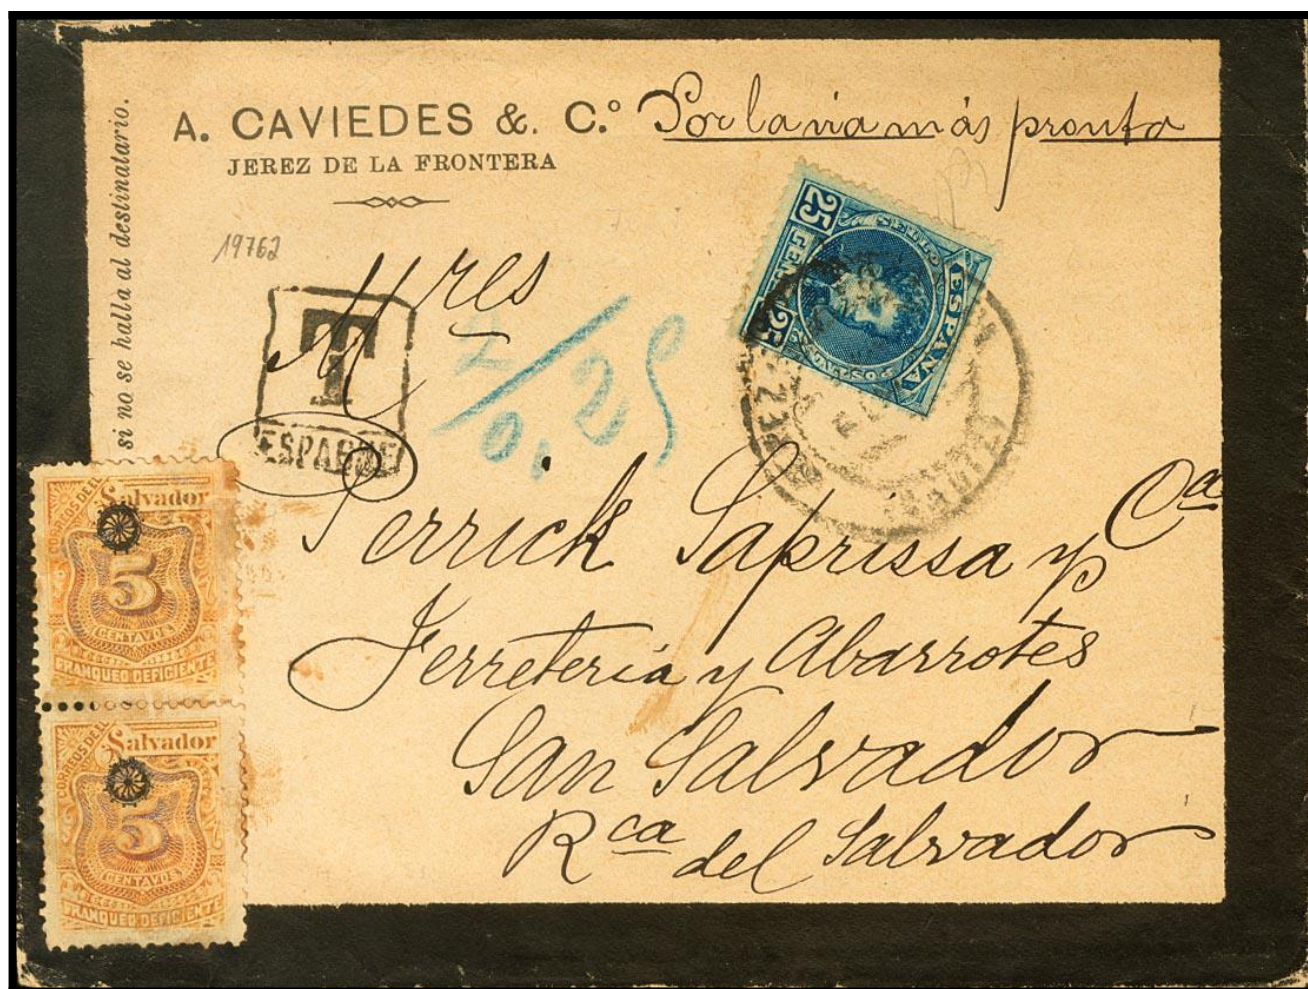 si no se halla al destinatario.
A. CAVIEDES &. C.º
JEREZ DE LA FRONTERA
Por la via más pronta
19762
Mres
T
ESPAGNE
0,25
25 SELLO 25
ESPAÑA
JEREZ
(CADIZ)
Perrick Saprissa y Ca
Ferreteria y Abarrotes
San Salvador
Rca del Salvador
CORREOS DE EL
Salvador
5
CENTAVOS
FRANQUEO DEFICIENTE
CORREOS DE EL
Salvador
5
CENTAVOS
FRANQUEO DEFICIENTE